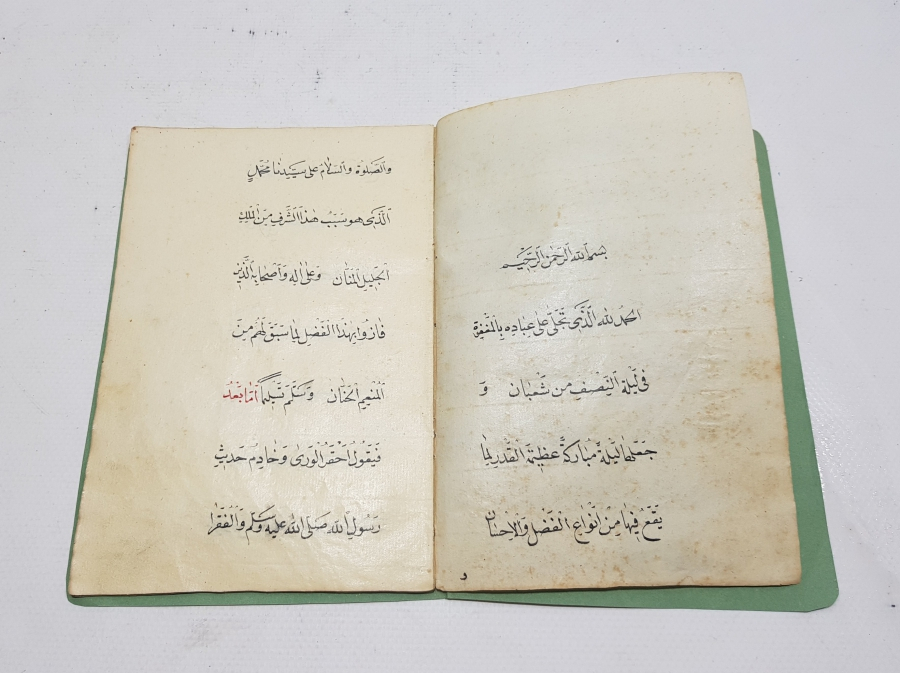 بسم الله الرحمن الرحيم
الحمد لله الَّذِي تَجَلّٰى عَلٰى عِبَادِهِ بِالْمَغْفِرَةِ
فِي لَيْلَةِ النِّصْفِ مِنْ شَعْبَان وَ
جَعَلَهَا لَيْلَةً مُبَارَكَةً عَظِيمَةَ الْقَدْرِ لِمَا
يَقَعُ فِيهَا مِنْ اَنْوَاعِ الْفَضْلِ وَالْاِحْسَانِ
و
وَالصَّلٰوةُ وَالسَّلَامُ عَلٰى سَيِّدِنَا مُحَمَّدٍ
الَّذِي هُوَ سَبَبُ هٰذَا الشَّرَفِ مِنَ الْمَلِكِ
الْجَلِيلِ الْمَنَّانِ وَعَلٰى اٰلِهِ وَاَصْحَابِهِ الَّذِينَ
فَازُوا بِهٰذَا الْفَضْلِ لِمَا سَبَقَ لَهُمْ مِنَ
الْمُنْعِمِ الْحَنَّانِ وَسَلَّمَ تَسْلِيماً اَمَّا بَعْدُ
فَيَقُولُ اَحْقَرُ الْوَرٰى وَخَادِمُ حَدِيثِ
رَسُولِ اللّٰهِ صَلَّى اللّٰهُ عَلَيْهِ وَسَلَّمَ وَالْفُقَرَا